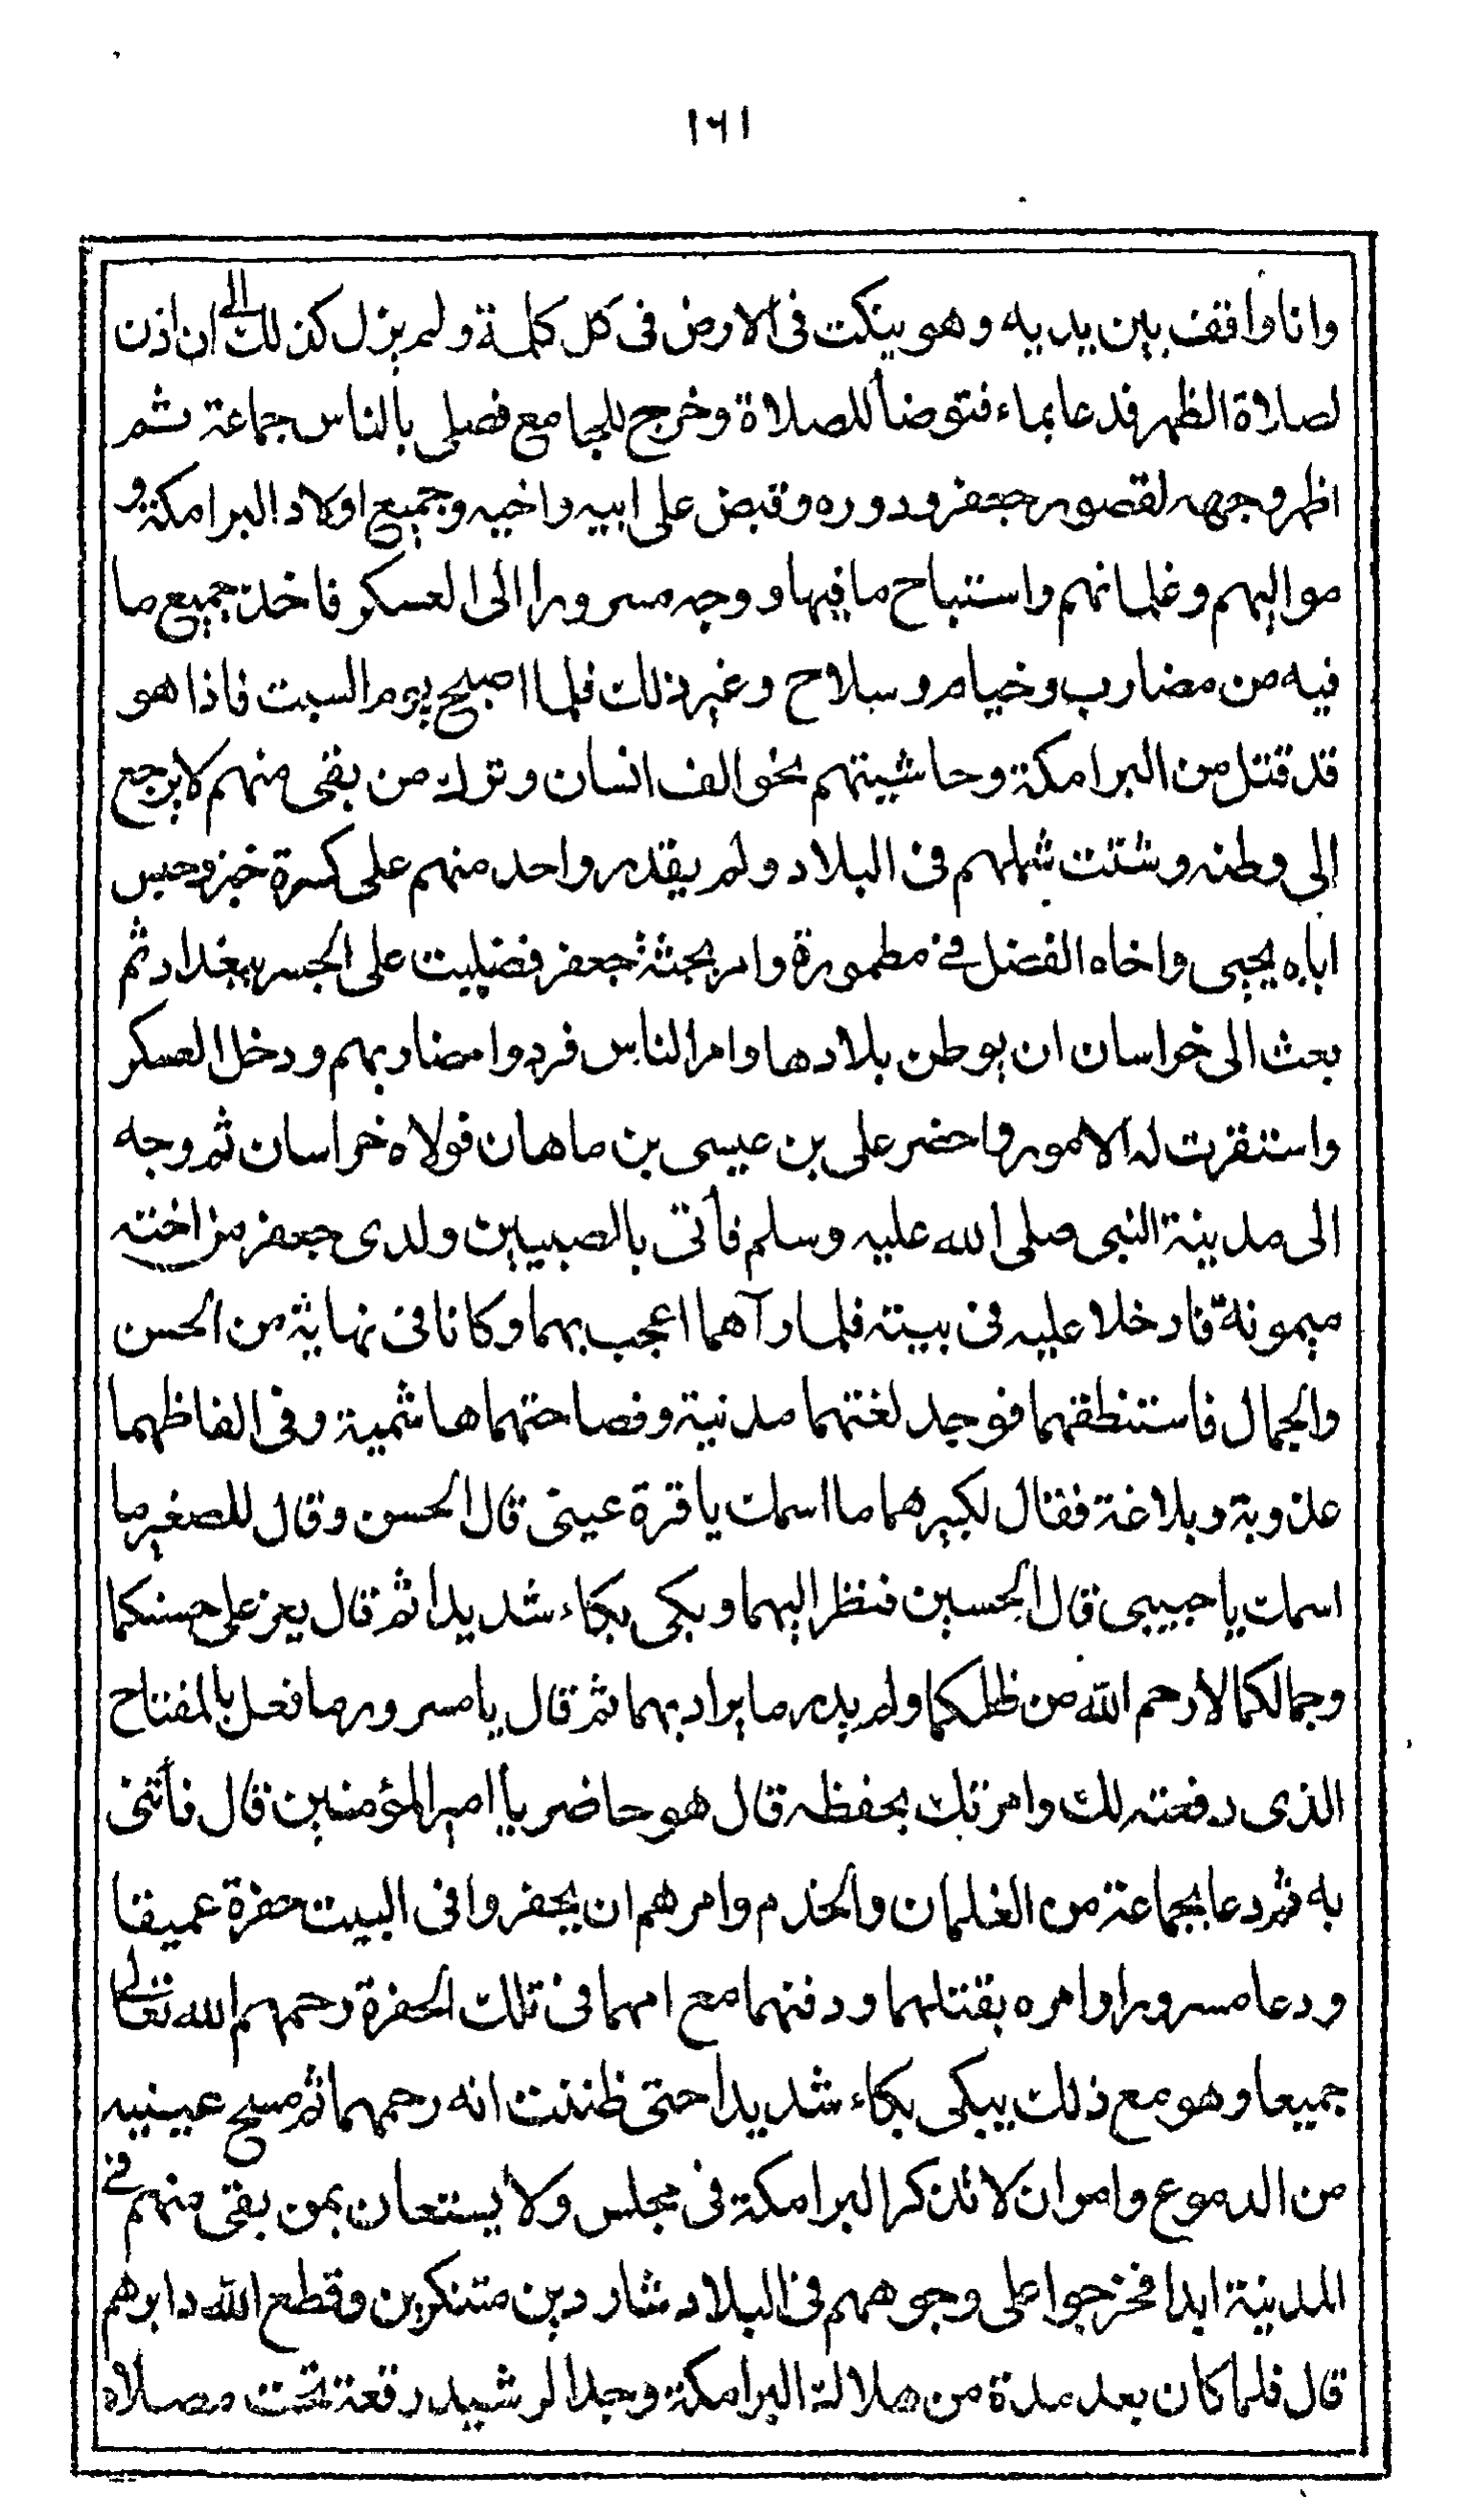 ١٦١
وانا واقف بين يديه وهو ينكت فى الارض فى كل كلمة ولم يزل كذلك الى ان اذن
لصلاة الظهر فدعا بماء فتوضأ للصلاة وخرج للجامع فصلى بالناس جماعة ثم
اظهر وجهه لقصور جعفر ودوره وقبض على ابيه واخيه وجميع اولاد البرامكة و
مواليهم وغلمانهم واستباح ما فيها ووجه مسرورا الى العسكر فاخذ جميع ما
فيه من مضارب وخيام وسلاح وغير ذلك فلما اصبح يوم السبت فاذا هو
قد قتل من البرامكة وحاشيتهم نحو الف انسان وترك من بقى منهم لا يرجع
الى وطنه وشتت شملهم فى البلاد ولم يقدر واحد منهم على كسرة خبز وحبس
اباه يحيى واخاه الفضل فى مطمورة وامر بجثة جعفر فضليت على الجسر ببغداد ثم
بعث الى خراسان ان يوطن بلادها وامر الناس فردوا مضاربهم ودخل العسكر
واستقرت له الامور واحضر على بن عيسى بن ماهان فولاه خراسان ثم وجه
الى مدينة النبى صلى الله عليه وسلم فأتى بالصبيين ولدى جعفر من اخته
ميمونة فادخلا عليه فى بيته فلما رآهما اعجب بهما وكانا فى نهاية من الحسن
والجمال فاستنطقهما فوجد لغتهما مدنية وفصاحتهما هاشمية وفى الفاظهما
عذوبة وبلاغة فقال لكبيرهما ما اسمك يا قرة عينى قال الحسن وقال للصغير ما
اسمك يا حبيبى قال الحسين فنظر اليهما وبكى بكاء شديدا ثم قال يعز على حسنكما
وجمالكما لا رحم الله من ظلمكما ولم يدر ما يراد بهما ثم قال يا مسرور ما فعل بالمفتاح
الذى دفعته لك وامرتك بحفظه قال هو حاضر يا امير المؤمنين قال فأتنى
به ثم دعا بجماعة من الغلمان والخدم وامرهم ان يحفروا فى البيت حفرة عميقا
ودعا مسرورا وامره بقتلهما ودفنهما مع امهما فى تلك الحفرة رحمهم الله تعالى
جميعا وهو مع ذلك يبكى بكاء شديدا حتى ظننت انه رحمهما ثم مسح عينيه
من الدموع وامر ان لا تذكر البرامكة فى مجلس ولا يستعان بمن بقى منهم فى
المدينة ابدا فخرجوا على وجوههم فى البلاد شاردين متنكرين وقطع الله دابرهم
قال فلما كان بعد مدة من هلالة البرامكة وجد الرشيد رقعة تحت مصلاه